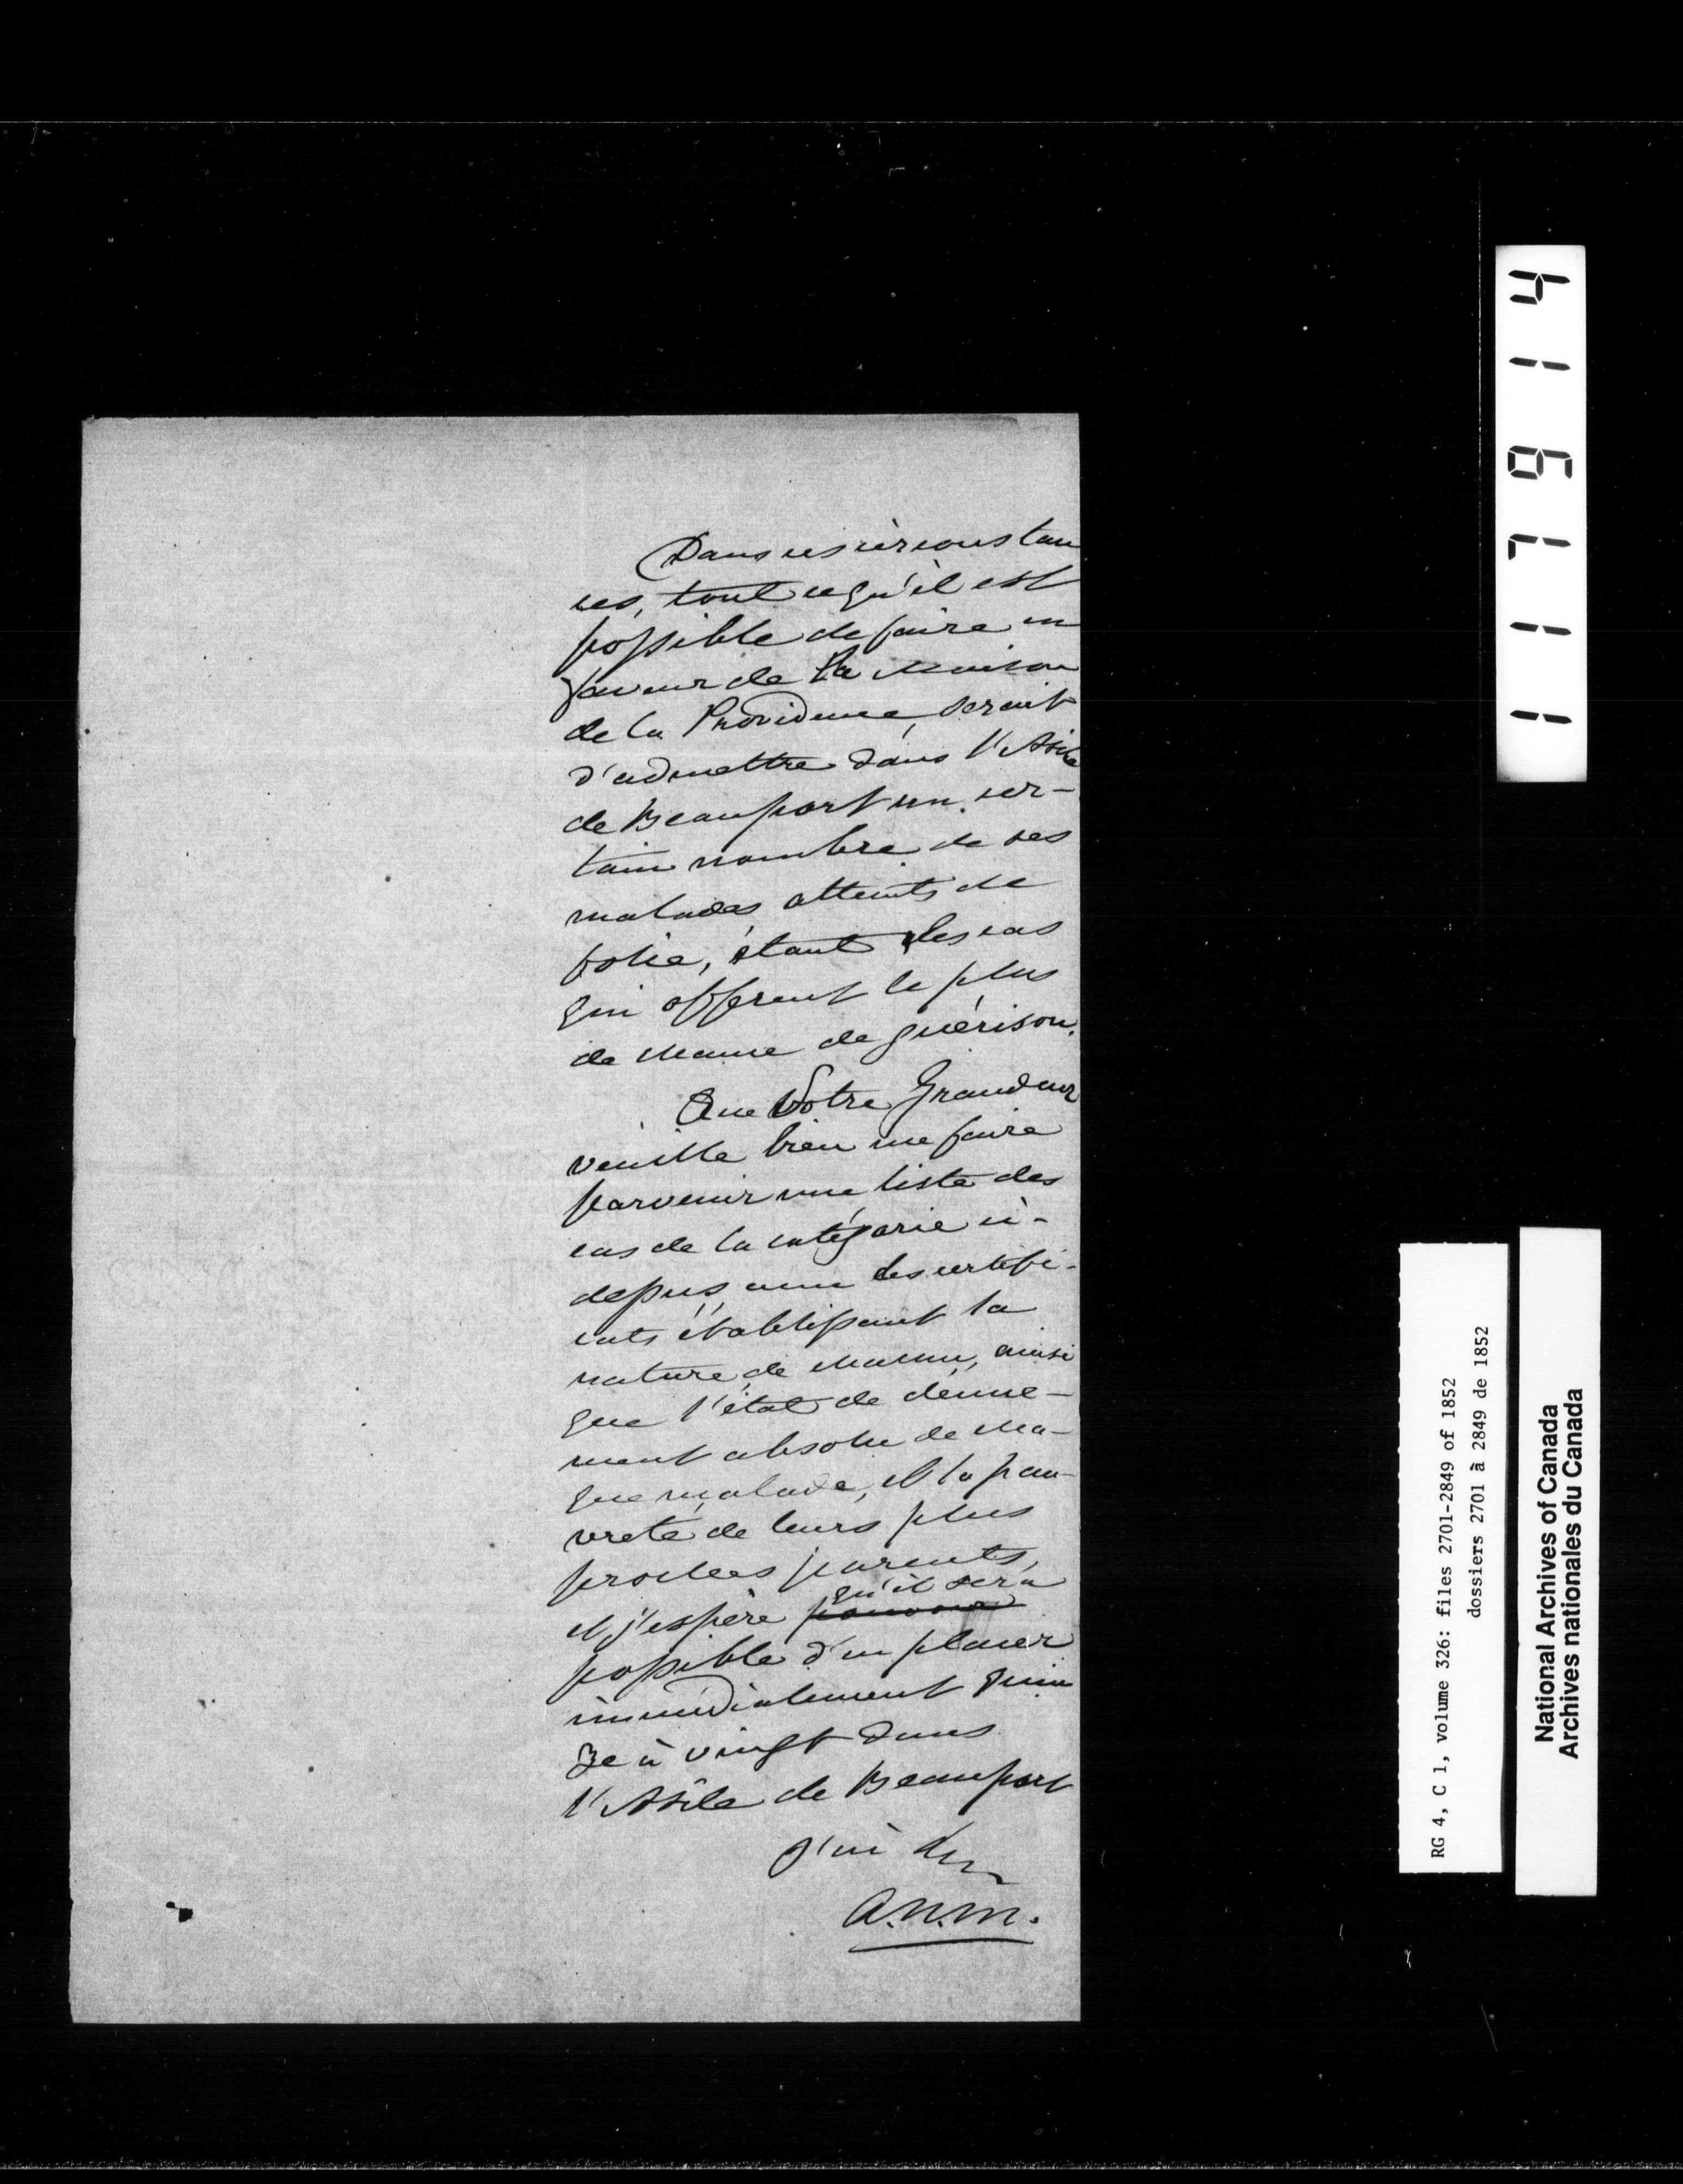 Dans ces circonstan
ces, tout ce qu'il est
possible de faire en
faveur de la maison
de la Providence, serait
d'admettre dans l'Asile
de Beauport un cer-
tain nombre de ses
malades atteints de
folie, étant les cas
qui offrent le plus
de chance de guérison.
Que Votre Grandeur
veuille bien me faire
parvenir une liste des
cas de la catégorie ci-
dessus avec les certifi-
cats établissant la
nature de chacun, ainsi
que l'état de dénue-
ment absolu de cha-
que malade, et la pau-
vreté de leurs plus
proches parents,
qu'il sera
et j'espère pouvoir
possible d'en placer
immédiatement quin
ze à vingt dans
l'Asile de Beauport
J'ai
A.N.M.
117914
RG 4, C 1, volume 326: files 2701-2849 of 1852
dossiers 2701 à 2849 de 1852
National Archives of Canada
Archives nationales du Canada